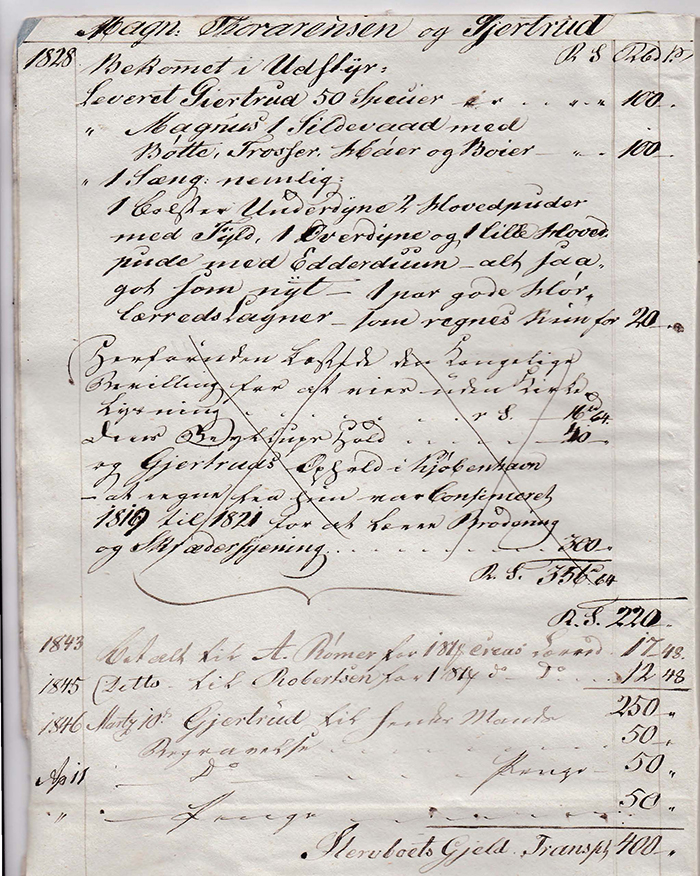 Magn: Thorarensen og Gjertrud
1828 Bekomet i Udstyr: R S Rbd
Leveret Giertrud 50 Specier er " " 100 "
" Magnus 1 Sildevaad med
Bötte, Trosser, Håer og Boier " 100 "
" 1 Sæng: nemlig:
1 Bolster Underdÿne 2 Hovedpuder
med Fÿld, 1 Overdÿne og 1 lille Hoved
pude med Edderduun – alt saa
got som nÿt – 1 par gode Hör,
lærreds Lagner – som regnes kun for 20 "
den Kongelige
Bevilling for at vies uden Kirke
Lysning r S. 16 64
Deres Bryllups Hold 40
og Gjertruds Ophold i Kjöbenhavn
– at regne fra hun var Confirmeret
1819 til 1821 for at lære Brodering
og Skrædersyening 300 "
R. S. 356 64
R. S. 220 "
1843 Betalt til A. Rømer for 17 48
1845 Ditto til Robertsen for do Do 12 48
250 "
1846 Martz 10de Gjertrud til hendes Mands
Begravelse 50 "
Ap 11 Do Penge 50 "
" Penge 50 "
Stervboets Gjeld Transpt 400 "